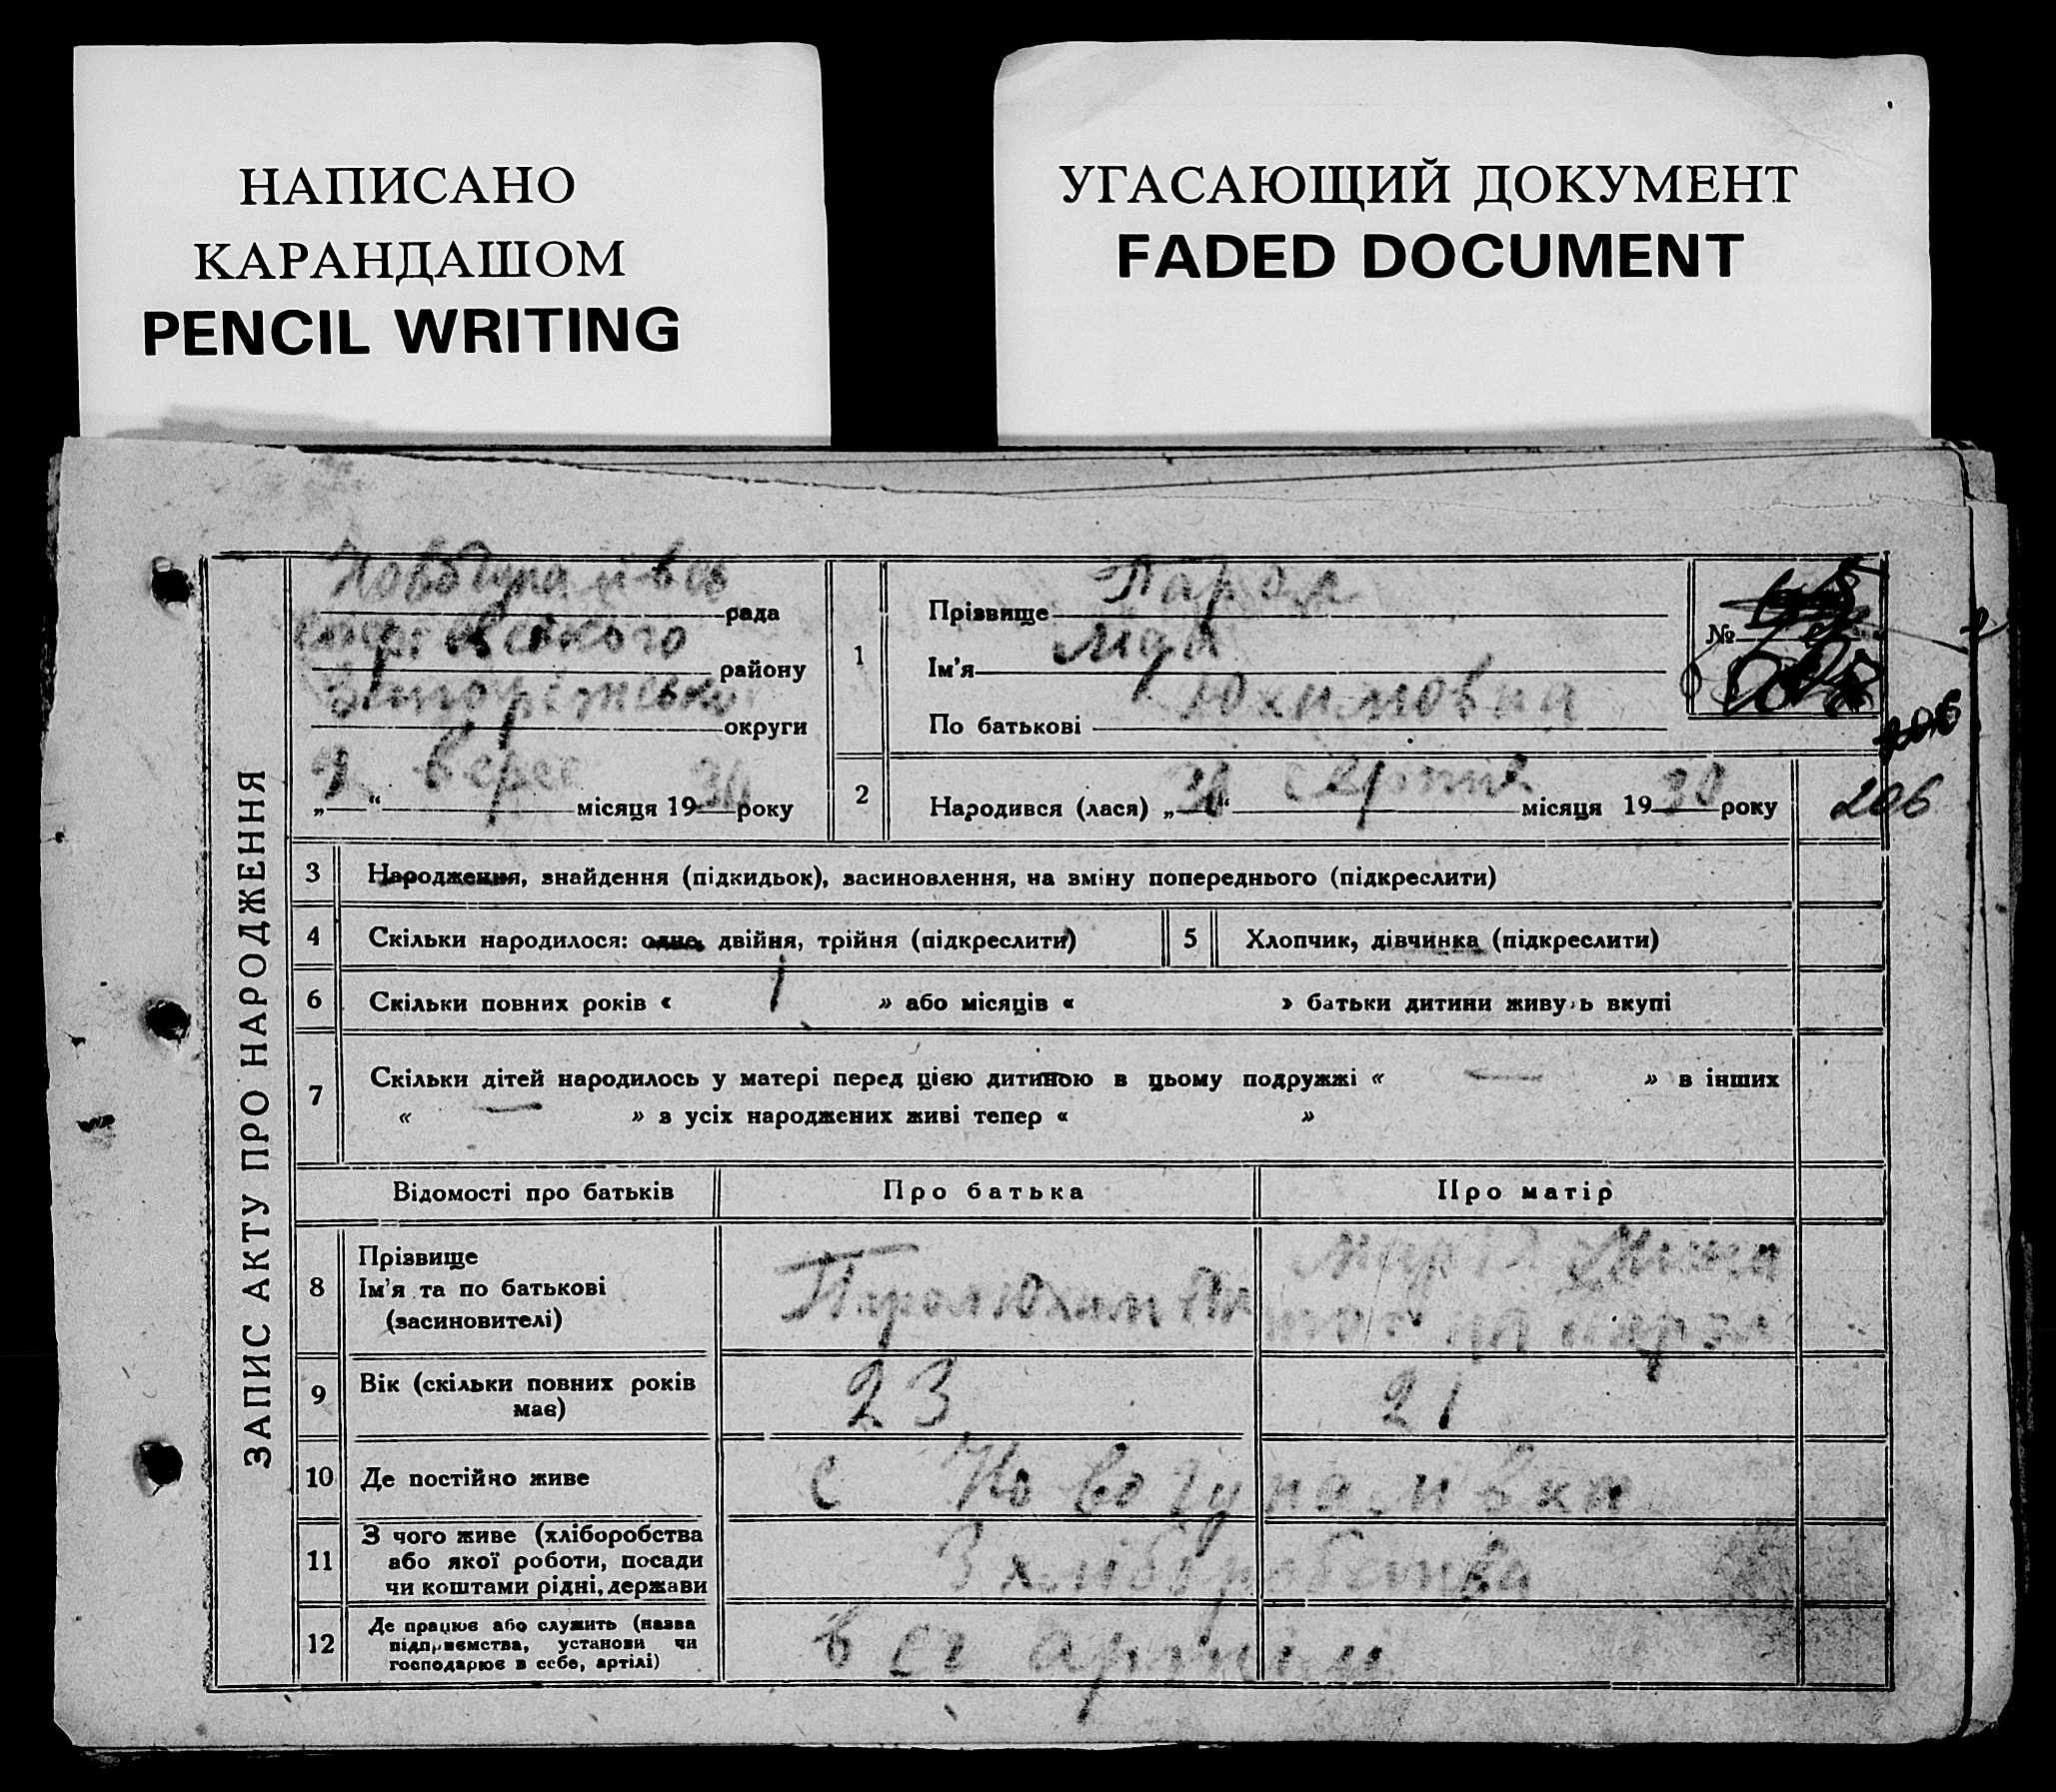 НАПИСАНО
КАРАНДАШОМ
PENCIL WRITING
УГАСАЮЩИЙ ДОКУМЕНТ
FADED DOCUMENT
ЗАПИС АКТУ ПРО НАРОДЖЕННЯ
рада
району
округи
„ “ верес місяця 1930 року
1
Прізвище Парол
Ім'я
По батькові Юхимовна
№
206
2
Народився (лася) „30“ серпня місяця 1930 року
206
3 Народження, знайдення (підкидьок), засиновлення, на зміну попереднього (підкреслити)
4 Скільки народилося: одне, двійня, трійня (підкреслити)
5 Хлопчик, дівчинка (підкреслити)
6 Скільки повних років « 1 » або місяців « » батьки дитини живуть вкупі
7 Скільки дітей народилось у матері перед цією дитиною в цьому подружжі « — » в інших
« — » з усіх народжених живі тепер « »
Відомості про батьків
Про батька
Про матір
8 Прізвище
Ім'я та по батькові
(засиновителі)
Парол Юхим
Марія
9 Вік (скільки повних років
має)
23
21
10 Де постійно живе
с Новогупалівки
11 З чого живе (хліборобства
або якої роботи, посади
чи коштами рідні, держави
З хліборобства
12 Де працює або служить (назва
підприємства, установи чи
господарює в себе, артілі)
в с г артіли